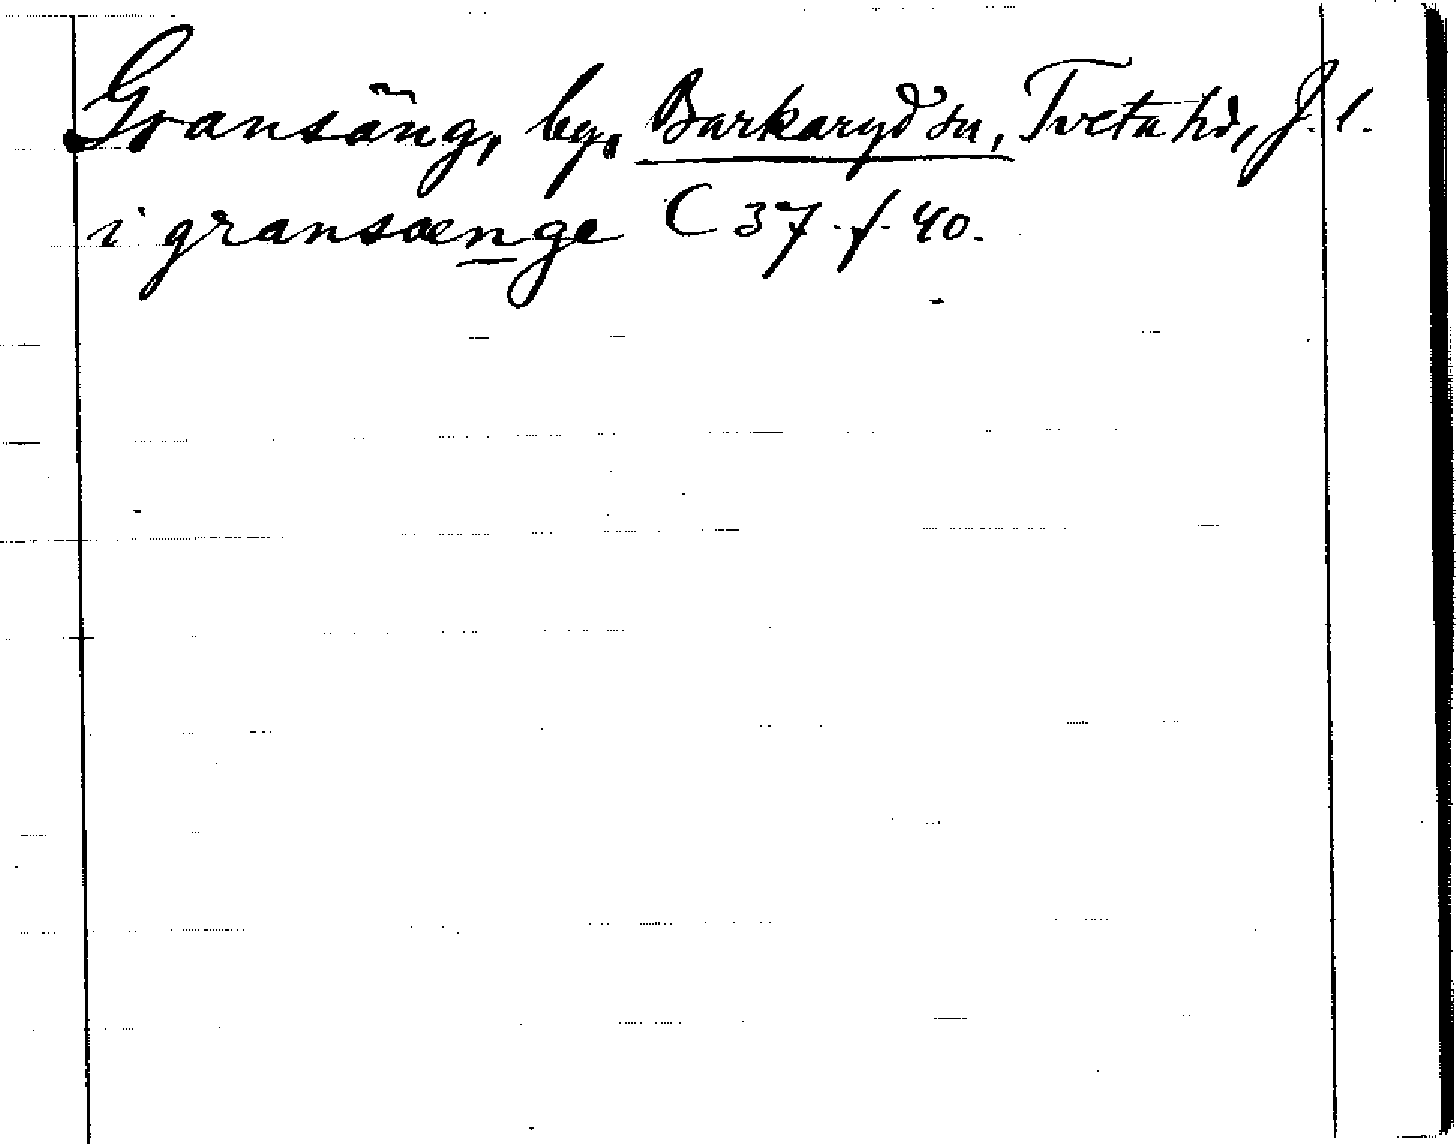 Gransäng, by, Barkaryd sn, Tveta hd, J. l.
i gransænge C 37 f. 40.